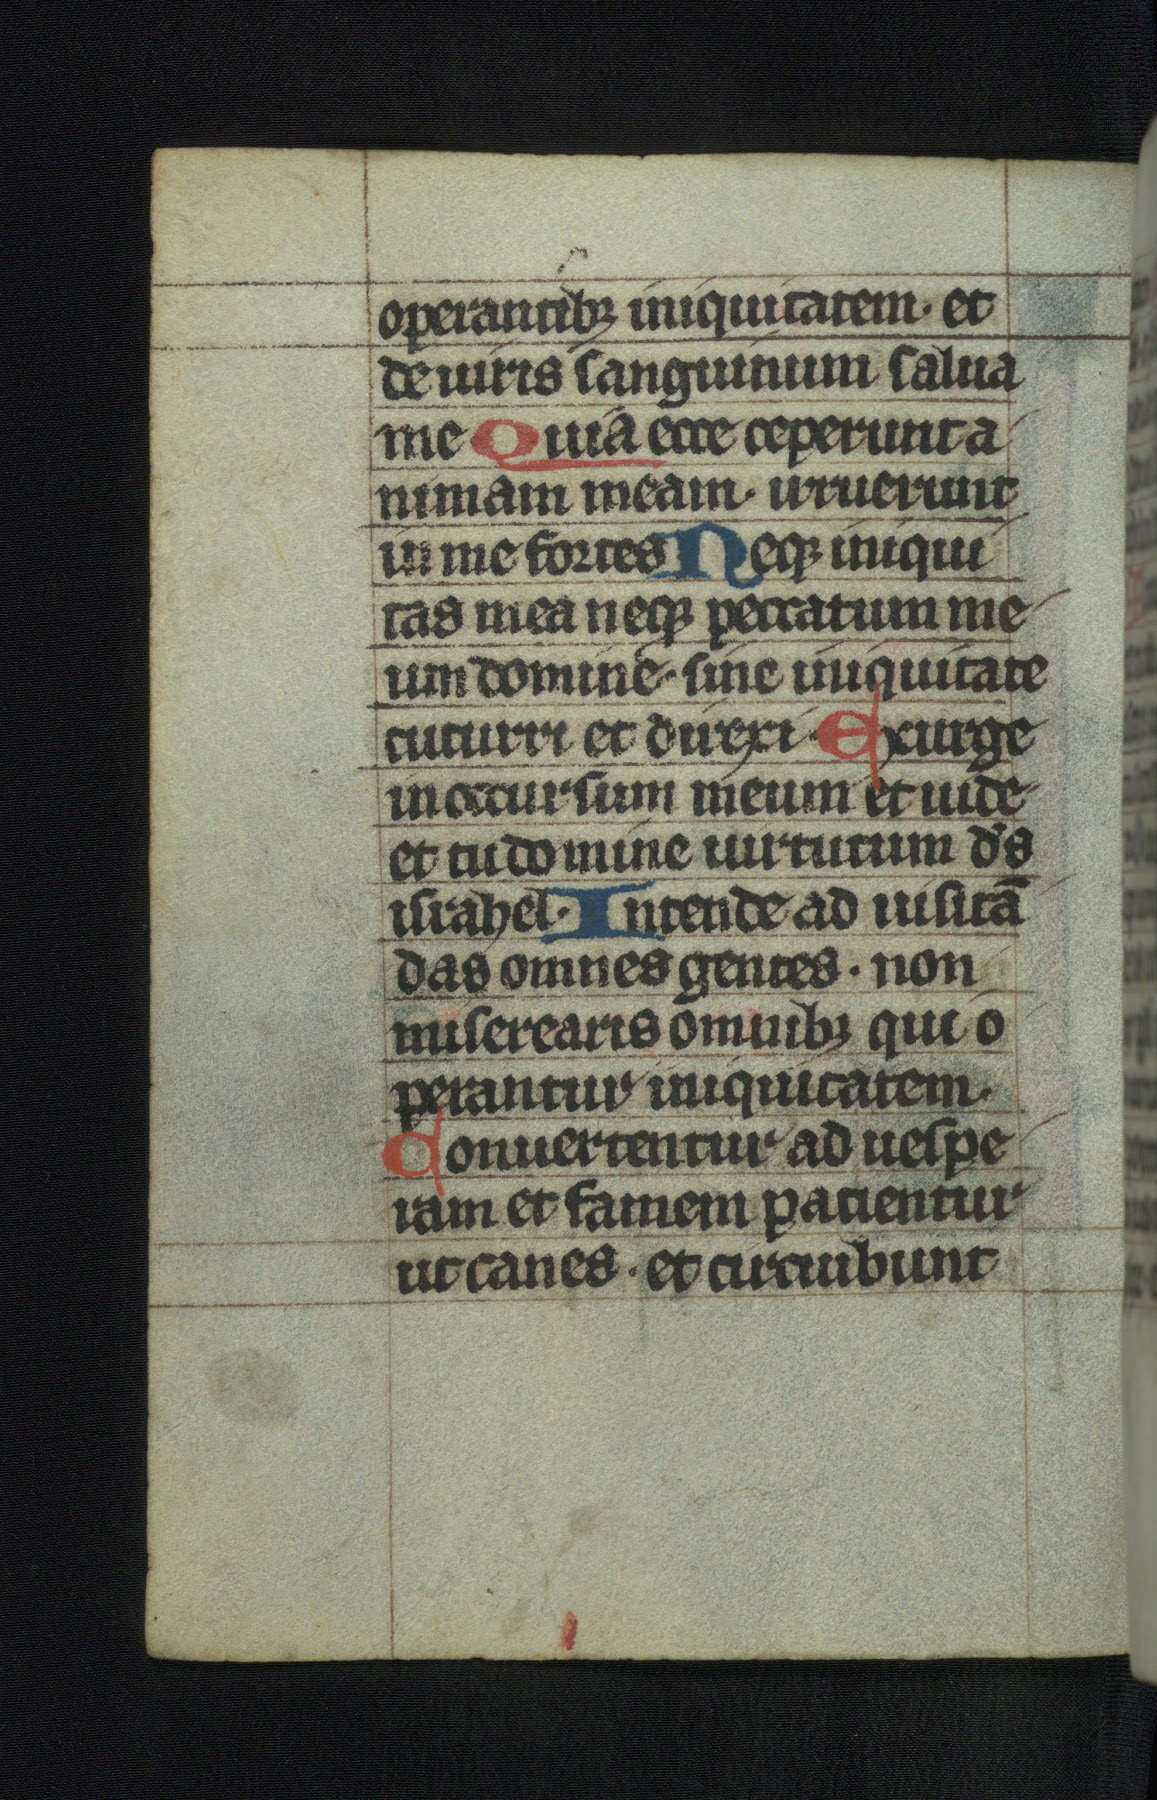 operantibꝫ iniquitatem· et
de uiris sanguinum salua
me Quia ecce ceperunt a
nimam meam· irruerunt
in me fortes Neqꝫ iniqui
tas mea neqꝫ peccatum me
um domine· sine iniquitate
cucurri et direxi· Exurge
in occursum meum et uide·
et tu domine uirtutum d̅s
israhel· Intende ad uisitā
das omnes gentes· non
miserearis omnibꝫ qui o
perantur iniquitatem·
Conuertentur ad uespe
ram et famem patientur
ut canes· et circuibunt